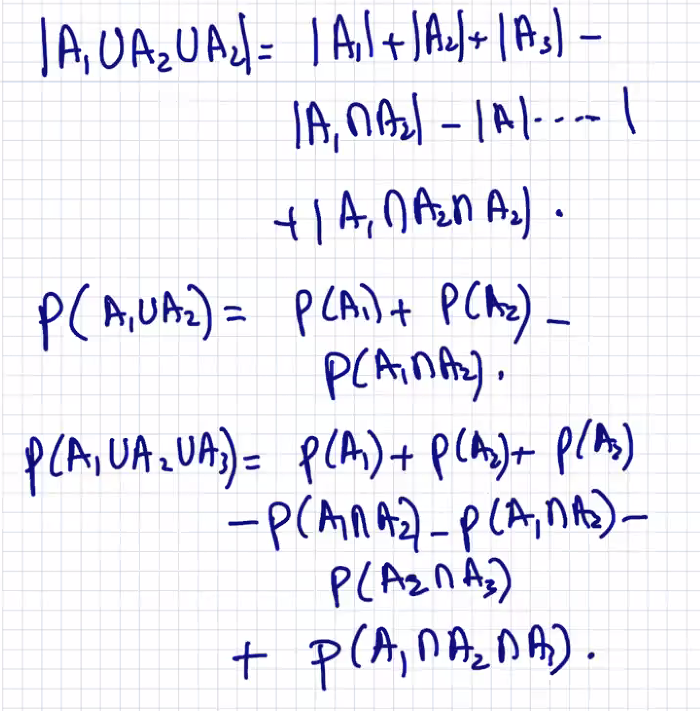 |A₁∪A₂∪A₂| = |A₁| + |A₂| + |A₃| −
|A₁∩A₂| − |A| ---- |
+ | A₁∩A₂∩A₂| .
P( A₁∪A₂) = P(A₁) + P(A₂) −
P(A₁∩A₂) .
P(A₁∪A₂∪A₃) = P(A₁) + P(A₂) + P(A₃)
− P(A₁∩A₂) − P(A₁∩A₂) −
P(A₂∩A₃)
+ P(A₁∩A₂∩A₃) .